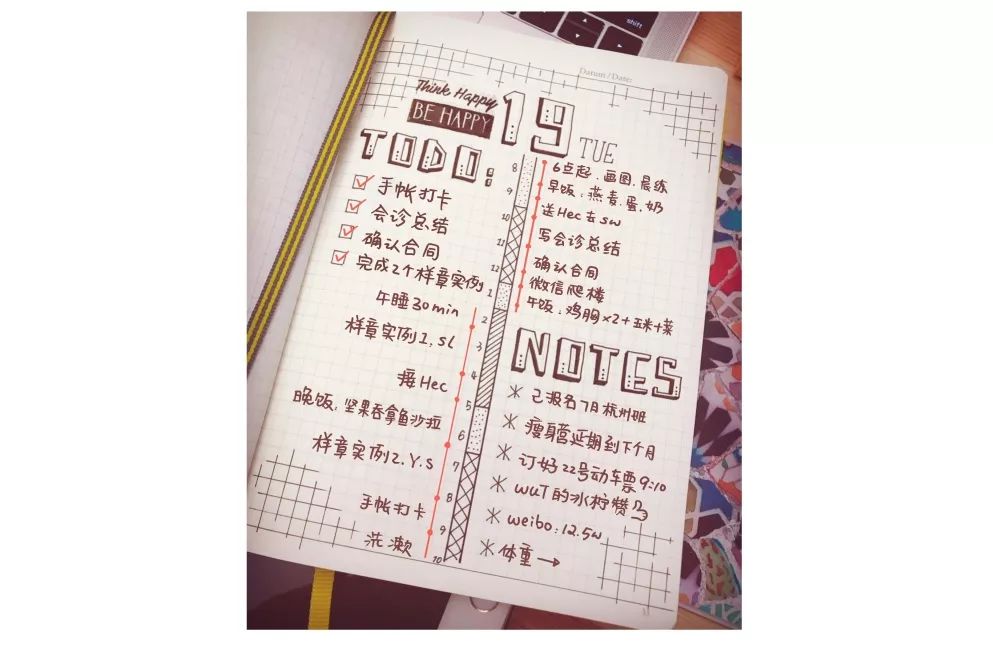 shift
Datum / Date:
Think Happy
BE HAPPY
19 TUE
TODO:
手帐打卡
会诊总结
确认合同
完成2个样章实例
午睡30min
样章实例1.sl
接Hec
晚饭.坚果吞拿鱼沙拉
样章实例2.Y.S
手帐打卡
洗漱
8
9
10
11
12
1
2
3
4
5
6
7
8
9
10
6点起.画图.晨练
早饭:燕麦.蛋.奶
送Hec去sw
写会诊总结
确认合同
微信爬楼
午饭:鸡胸x2+玉米+菜
NOTES
已报名7月杭州班
瘦身营延期到下个月
订好22号动车票9:10
WUT的水柠赞
weibo:12.5w
体重→